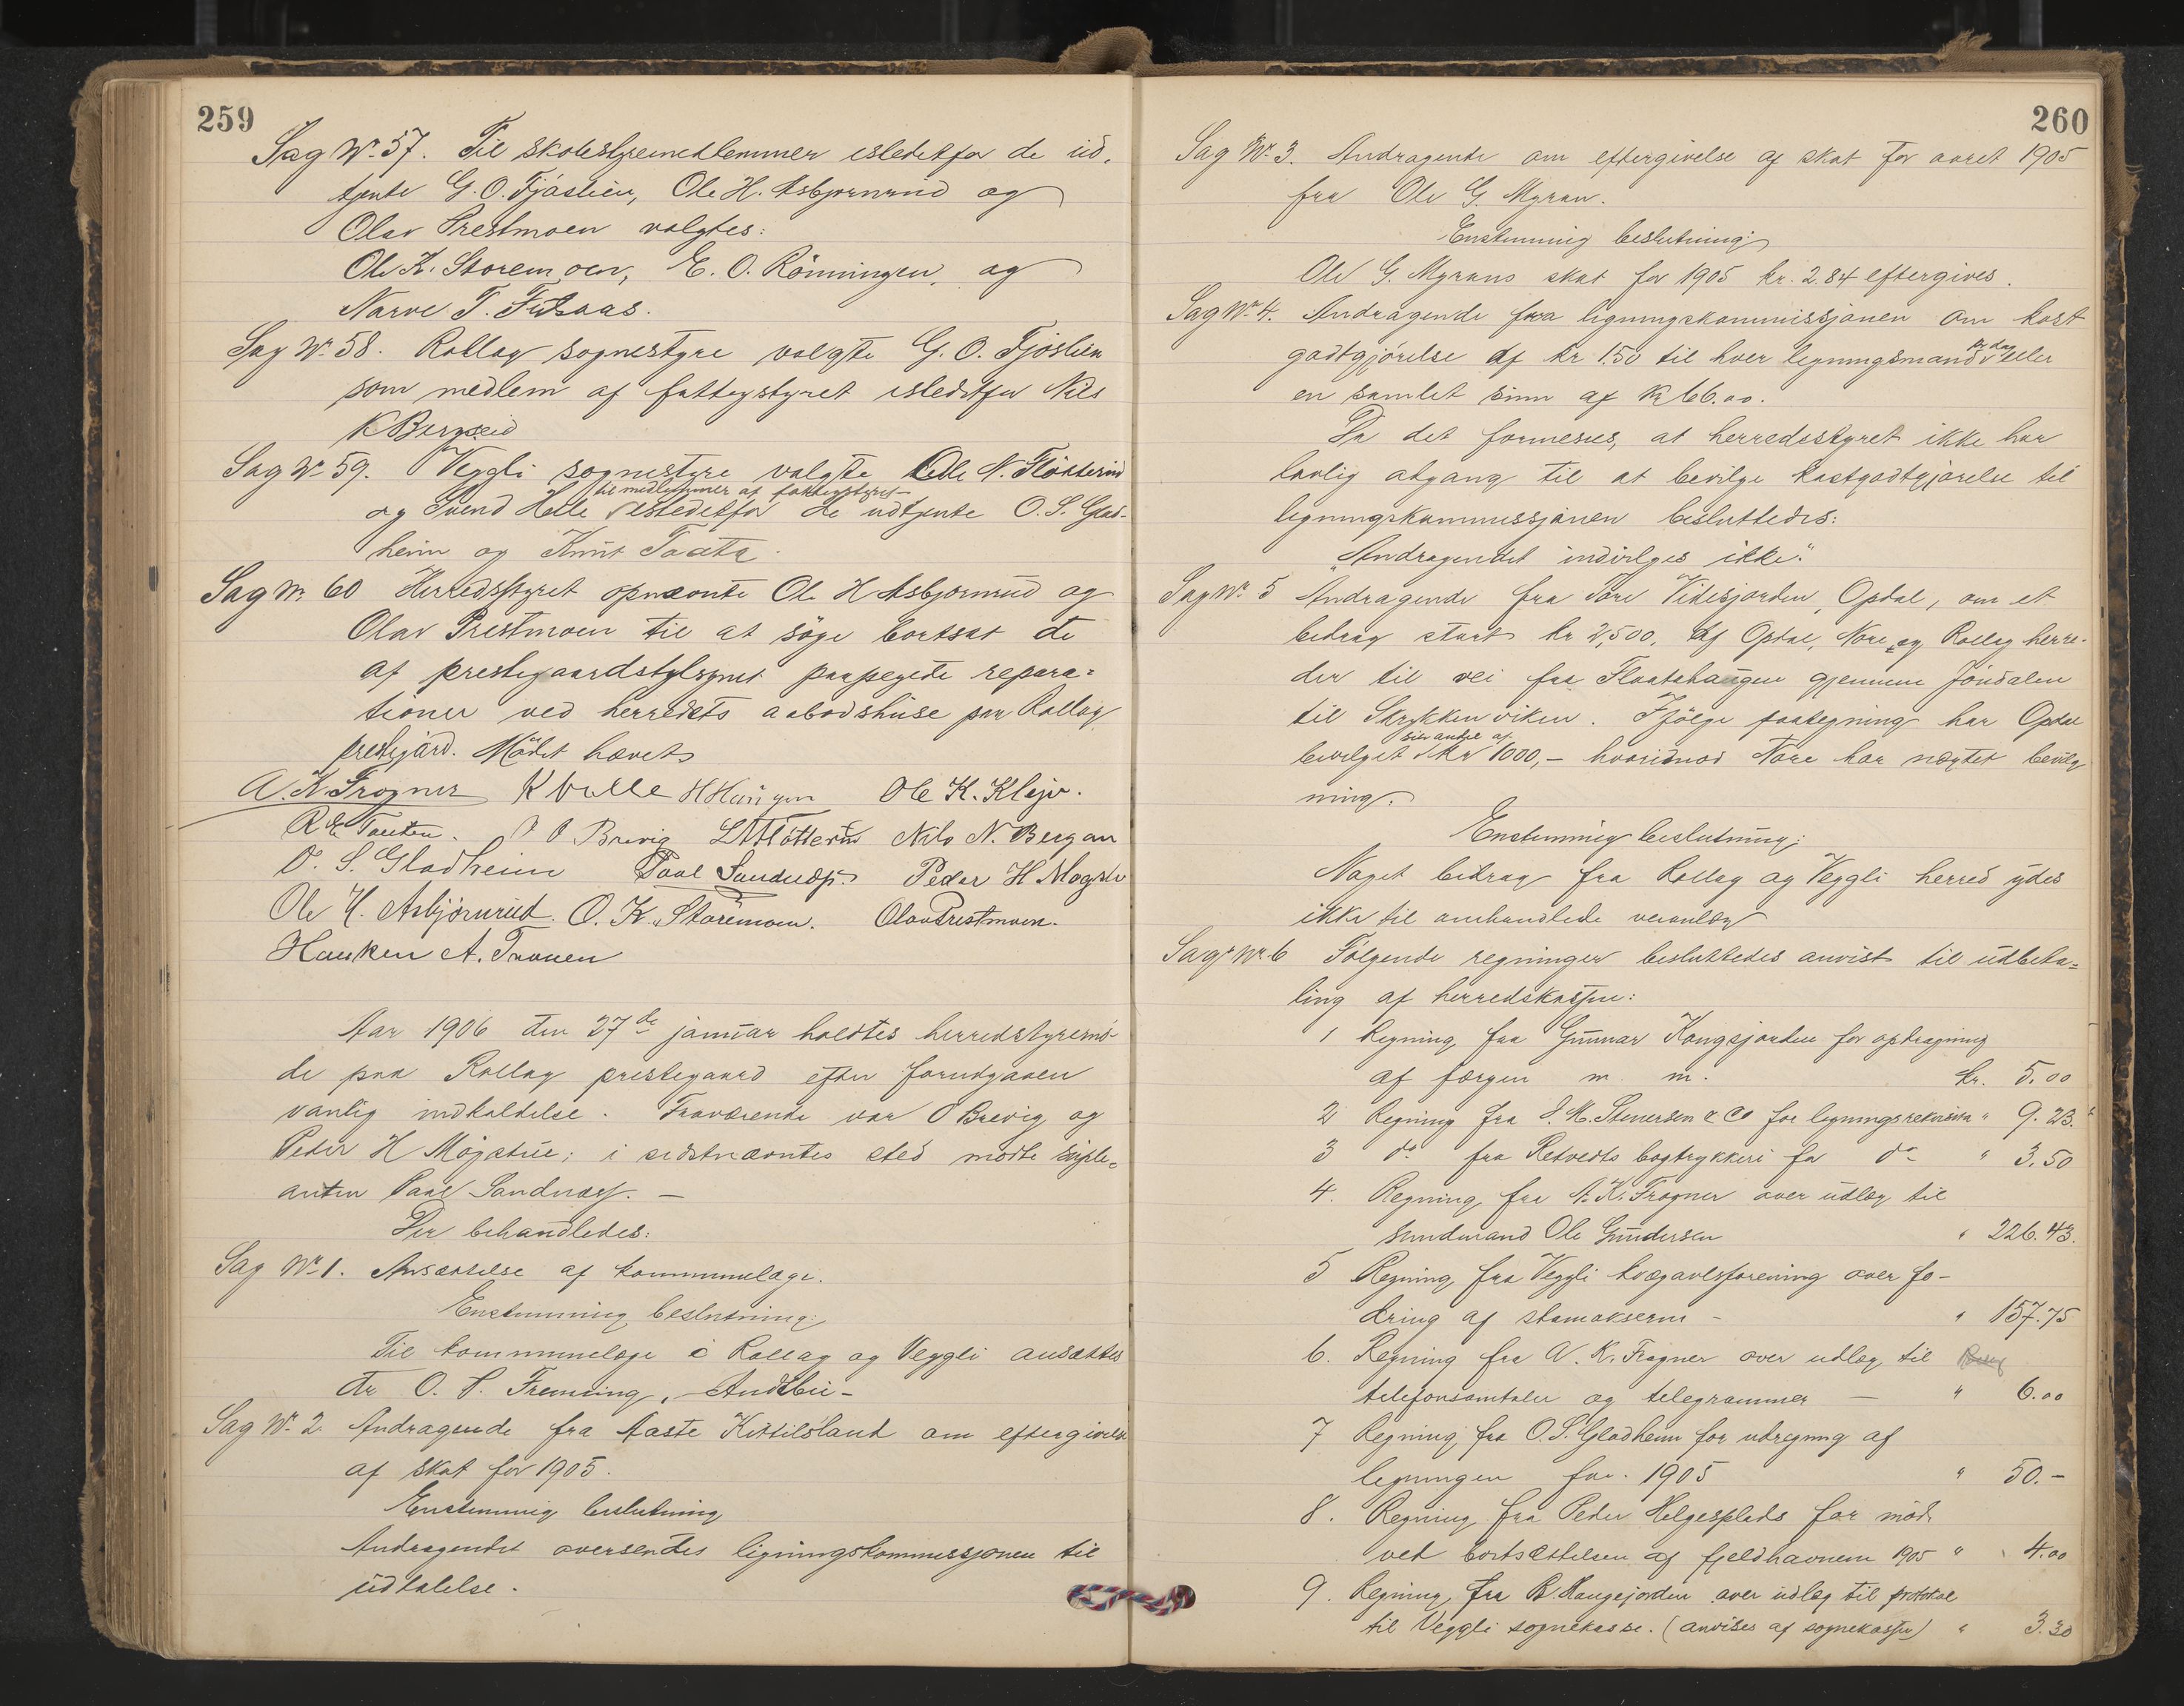 259
Sag Nr. 57. Til skolestyremedlemmer istedetfor de ud-
tjente G. O. Fjöslien, Ole H. Asbjørnrud og
Olav Prestmoen valgtes:
Ole K. Storemoen, E. O. Rönningen, og
Narve T. Fulsaas.
Sag Nr. 58. Rollag sognestyre valgte G. O. Fjöslien
som medlem af fattigstyret istedetfor Nils
K Bergseid
Sag Nr. 59. Veggli sognestyre valgte Ole N. Flötterud
til medlemmer af fattigstyret
og Svend Helle istedetfor de udtjente O. S. Glad-
heim og Knut Taata.
Sag Nr. 60 Herredsstyret opnævnte Ole H Asbjørnrud og
Olav Prestmoen til at söge bortsat de
af prestegaardstilsynet paapegede repara-
tioner ved herredets aabodshuse paa Rollag
prestegård. Mödet hævet
A. K. Frogner K Velle H Haugen Ole K. Kleiv.
R E Tauten. O O Brevig L N Flötterud Nils N. Bergan
O. S. Gladheim Paal Sandnæs. Peder H Mogstu
Ole H. Asbjörnrud. O. K. Storemoen. Olav Prestmoen.
Hauken A. Traaen
Aar 1906 den 27de januar holdtes herredstyremö-
de paa Rollag prestegaard efter forudgaaen
vanlig indkaldelse. Fraværende var O Brevig og
Peder H Mogstue; i sidstnævntes sted mödte suple-
anten Paal Sandnæs. —
Der behandledes:
Sag Nr 1. Ansættelse af kommunelæge.
Enstemmig beslutning:
Til kommunelæge i Rollag og Veggli ansættes
dr O. P. Fremming, Andebu-
Sag Nr. 2. Andragende fra Aaste Kittilsland om eftergivelse
af skat for 1905.
Enstemmig beslutning
Andragendet oversendes ligningskommissjonen til
udtalelse.
260
Sag Nr. 3. Andragende om eftergivelse af skat for aaret 1905
fra Ole G. Myran.
Enstemmig beslutning:
Ole G. Myrans skat for 1905 kr. 2.84 eftergives.
Sag Nr 4. Andragende fra ligningskommissjonen om kost
pr dag
godtgjörelse af kr 1.50 til hver ligningsmand eller
en samlet sum af kr 66.00.
Da det formenes, at herredsstyret ikke har
lovlig adgang til at bevilge kostgodtgjørelse til
ligningskommissjonen besluttedes:
"Andragendet indvilges ikke".
Sag Nr 5 Andragende fra Tore Vidisjorden, Opdal, om et
bidrag stort kr 2,500, af Opdal, Nore og Rollag herre-
der til vei fra Flaatahaugen gjennem Jöndalen
til Skrykkenviken. Ifjölge paategning har Opdal
sin andel af
bevilget kr 1000,- hvorimod Nore har nægtet bevilg
ning.
Enstemmig beslutning:
Noget bidrag fra Rollag og Veggli herred ydes
ikke til omhandlede veianlæg
Sag Nr. 6 Fölgende regninger besluttedes anvist til udbeta-
ling af herredskassen:
1 Regning fra Gunnar Kongsjorden for optagning
af færgen m. m. kr. 5.00
2 Regning fra J. M. Stenersen & Co for ligningsrekvisita " 9.23.
3 do fra Retvedts bogtrykkeri for do " 3.50
4. Regning fra A. K. Frogner over udlæg til
sundmand Ole Gundersen " 226.43.
5 Regning fra Veggli kvægavlsforening over fo-
dring af stamokserne - " 157.75
6. Regning fra A. K. Frogner over udlæg til
telefonsamtaler og telegrammer — " 6.00
7 Regning fra O. S. Gladheim for udregning af
ligningen for 1905 " 50.-
8. Regning fra Peder Helgesplads for möde
ved bortsættelsen af fjeldhavnene 1905 " 4.00
9. Regning fra B. Haugejorden over udlæg til protokol
til Veggli sognekasse. (anvises af sognekassen) " 3.30